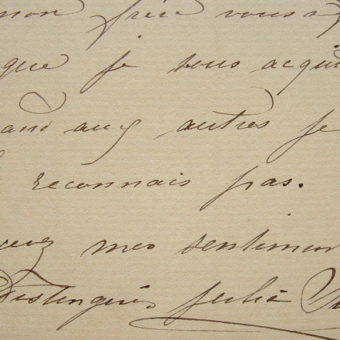 mon frère vous a
que je vous acqui
uand aux autres je
reconnais pas.
evez mes sentimen
Distingués Julia